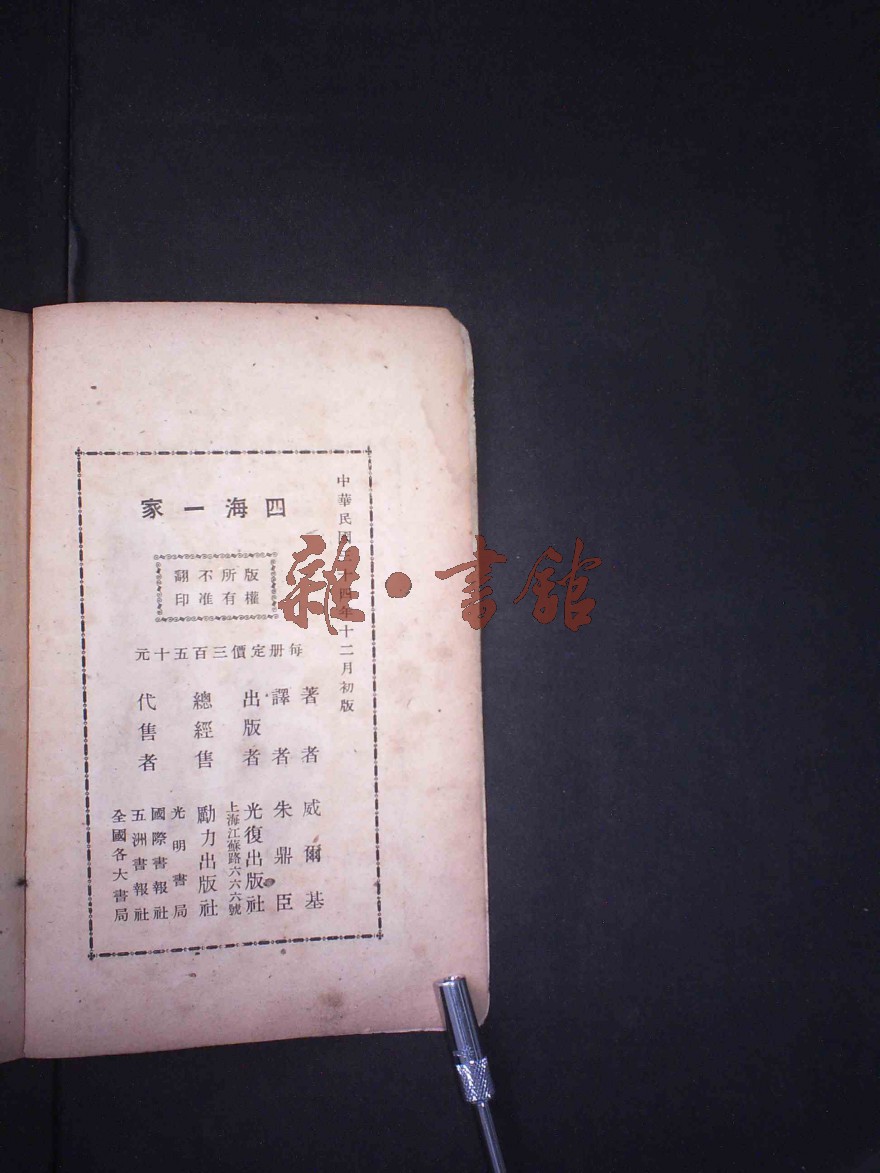 中華民國三十四年十二月初版
四海一家
版權
所有
不准
翻印
每册定價三百五十元
著者 威爾基
譯者 朱鼎臣
出版者 光復出版社
上海江蘇路六六六號
總經售 勵力出版社
代售者 光明書局
國際書報社
五洲書報社
全國各大書局
雜·書館